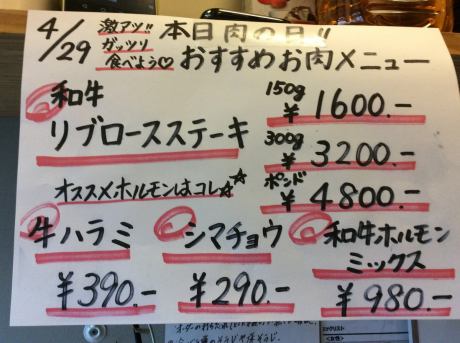 4/29
激アツ!!
ガッツリ
食べよう♡
本日肉の日!!
おすすめお肉メニュー
和牛
リブロースステーキ
150g
¥1600.-
300g
¥3200.-
ポンド
¥4800.-
オススメホルモンはコレ☆☆
牛ハラミ
¥390.-
シマチョウ
¥290.-
和牛ホルモン
ミックス
¥980.-